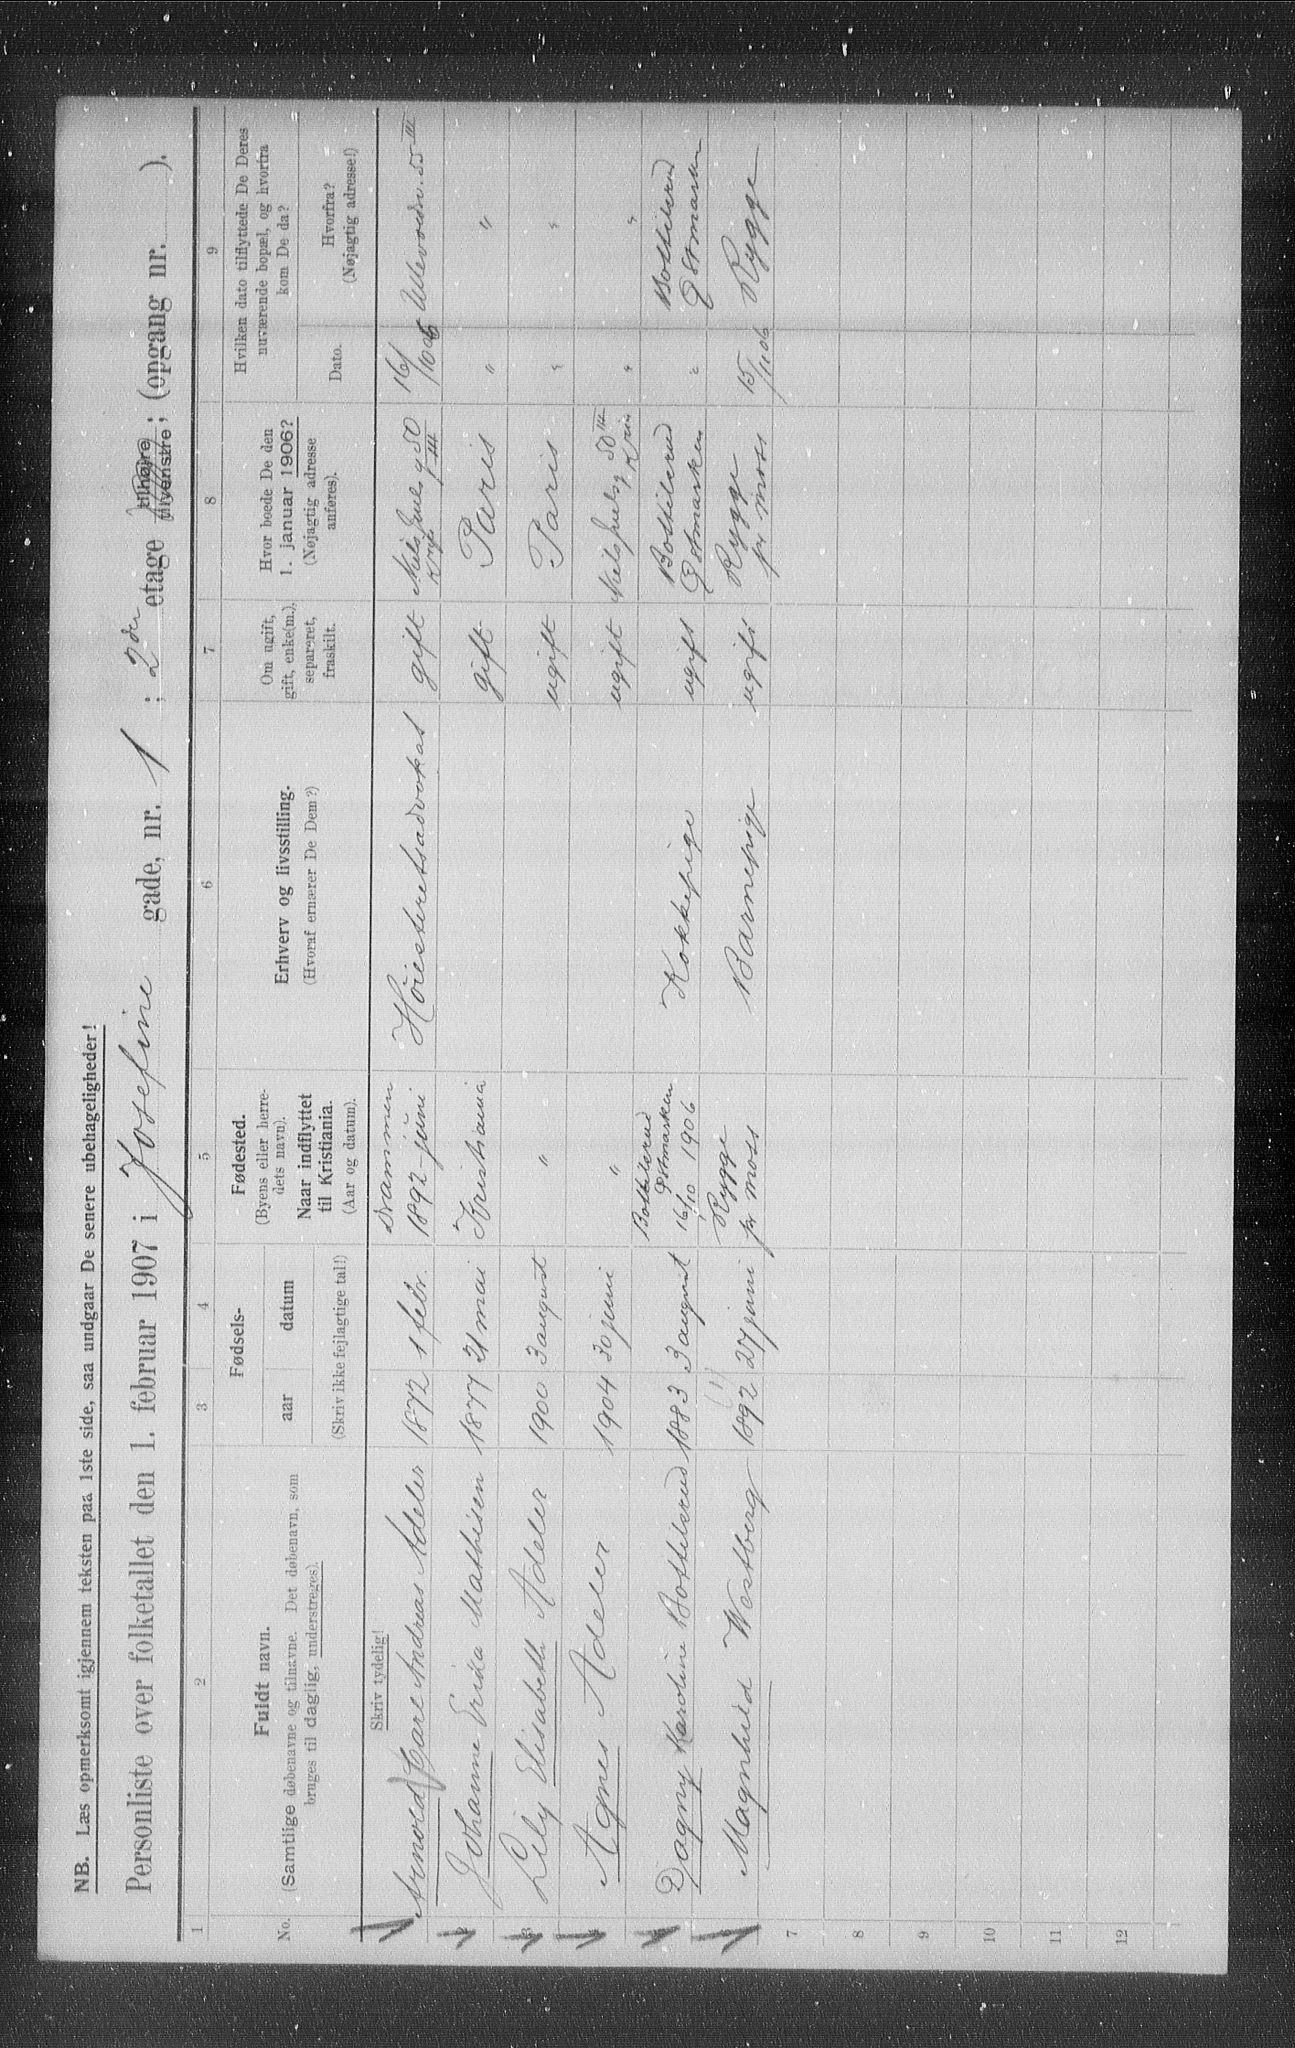 NB. Læs opmerksomt igjennem teksten paa 1ste side, saa undgaar De senere ubehageligheder!
Personliste over folketallet den 1. februar 1907 i Josefine gade, nr. 1 ; 2den etage tilhøire tilvenstre ; (opgang nr. ).
1 2 3 4 5 6 7 8 9
No.
Fuldt navn.
(Samtlige døbenavne og tilnavne. Det døbenavn, som
bruges til daglig, understreges).
Fødsels-
aar datum
(Skriv ikke fejlagtige tal!)
Fødested.
(Byens eller herre-
dets navn).
Naar indflyttet
til Kristiania.
(Aar og datum).
Erhverv og livsstilling.
(Hvoraf ernærer De Dem?)
Om ugift,
gift, enke(m.),
separeret,
fraskilt.
Hvor boede De den
1. januar 1906?
(Nøjagtig adresse
anføres).
Hvilken dato tilflyttede De Deres
nuværende bopæl, og hvorfra
kom De da?
Dato.
Hvorfra?
(Nøjagtig adresse!)
Skriv tydelig!
Arnold Andreas Adeler 1872 1 febr. Drammen 1892-juni Høiesteretsadvokat gift Niels Juels g 50 III 16/10 06 Ullevoldsv. 55 III
2 Johanne Frida Mathisen 1877 21 mai Kristiania gift Paris " "
3 Lily Elisabeth Adeler 1900 3 august " ugift Paris " "
4 Agnes Adeler 1904 30 juni " ugift Niels Juels g 50 III " "
Dagny Karoline Bottilsrud 1883 3 august Bottilsrud Østmarken 16/10 1906 Kokkepige ugift Bottilsrud Østmarken " Bottilsrud Østmarken
Magnhild Westberg 1892 (1) 27 juni Rygge pr moss Barnepige ugift Rygge pr moss 15/11 06 Rygge
7
8
9
10
11
12